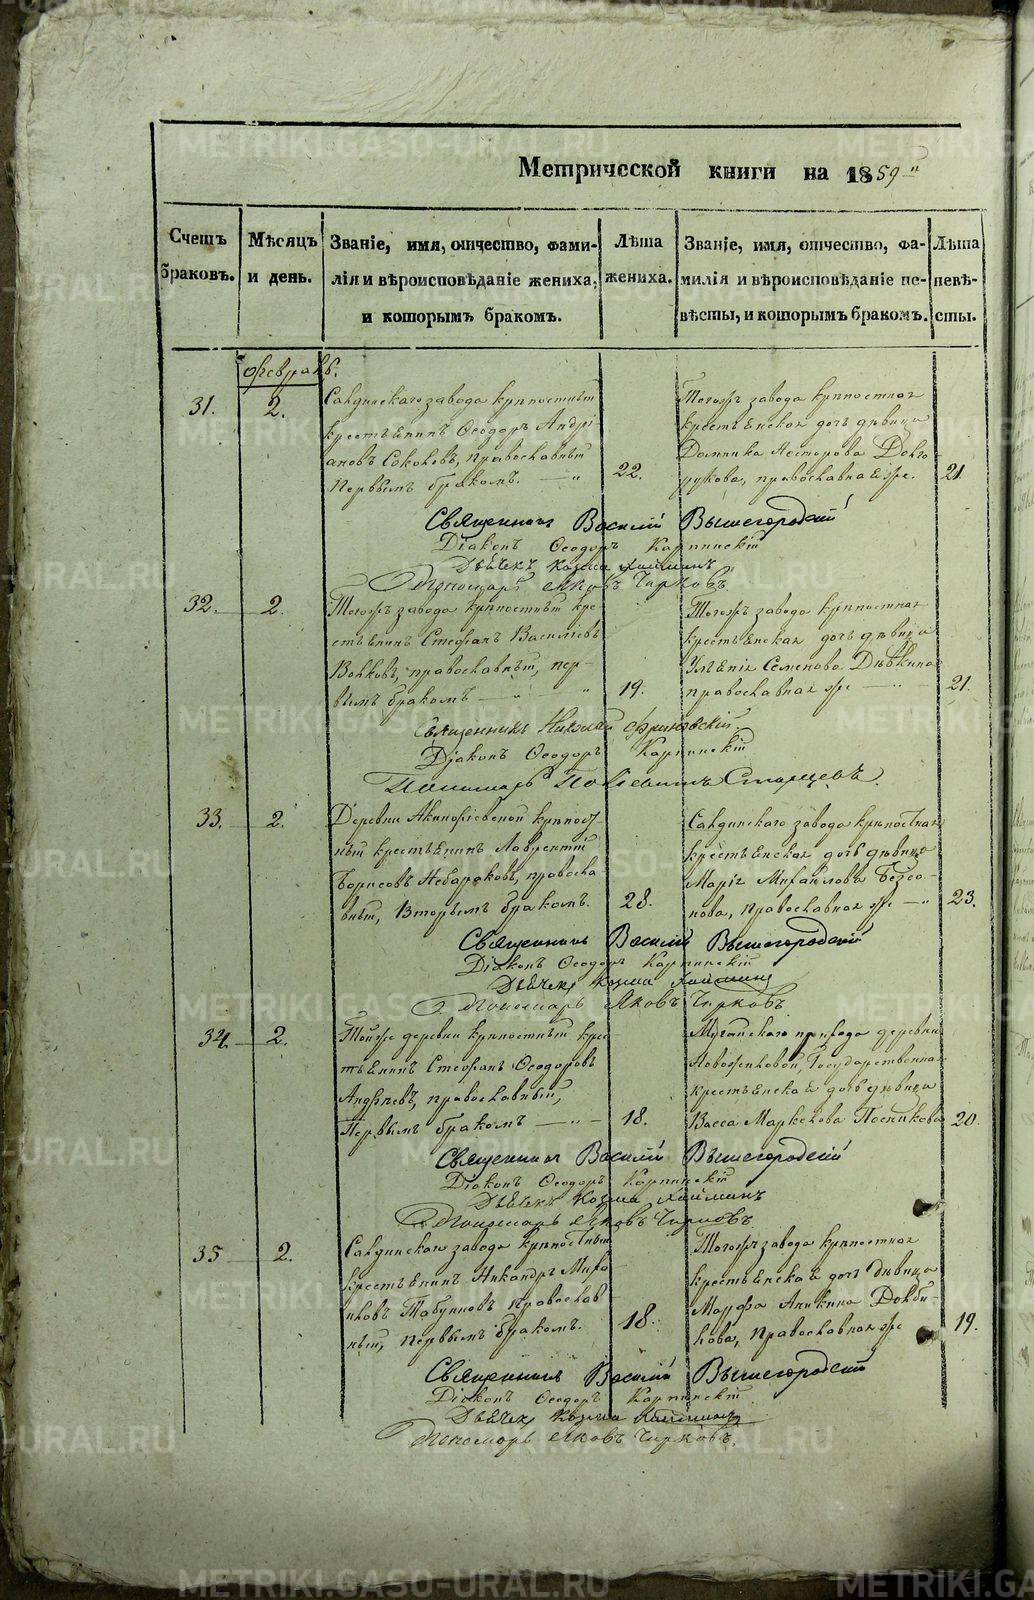 Метрической книги на 1859й
Счетъ браковъ.
Мѣсяцъ и день.
Званіе, имя, отчество, фами-
лія и вѣроисповѣданіе жениха,
и которымъ бракомъ.
Лѣта
жениха.
Званіе, имя, отчество, фа-
милія и вѣроисповѣданіе не-
вѣсты, и которымъ бракомъ.
Лѣта
невѣ-
сты.
Февраль.
31. 2.
Салдинскаго завода крѣпостный
крестьянинъ Ѳеодоръ Андрі
ановъ Соколовъ, православный
Первымъ бракомъ. 22.
Тогожъ завода крѣпостная
крестьянская дочь дѣвица
Домника Несторова Долго-
рукова, православная же. 21
Священникъ Василій Вышегородскій
Діаконъ Ѳеодоръ Карпинскій
Дьячекъ Козма
Пономарь Яковъ Чирковъ
32. 2.
Тогожъ завода крѣпостный кре
стьянинъ Стефанъ Васильевъ
Волковъ, православный, пер-
вымъ бракомъ 19.
Тогожъ завода крѣпостная
крестьянская дочь дѣвица
Уліянія Семенова Дѣвкина
православная же 21.
Священникъ Николай
Діаконъ Ѳеодоръ Карпинскій
Пономарь Старцевъ.
33. 2.
Деревни Акинфіевской крѣпост
ный крестьянинъ Лаврентій
Борисовъ православ
вный, вторымъ бракомъ. 28.
Салдинскаго завода крѣпостная
крестьянская дочь дѣвица
Марія Михайлова Безсо-
нова, православная же 23.
Священникъ Василій Вышегородскій
Діаконъ Ѳеодоръ Карпинскій
Дьячекъ Козма
Пономарь Яковъ Чирковъ
34. 2.
Тойже деревни крѣпостный крес
тьянинъ Стефанъ Ѳеодоровъ
Андреевъ, православный,
Первымъ бракомъ 18.
Мугайскаго прихода деревни
Новожиловой, Государственная
крестьянская дочь дѣвица
Васса Маркелова Постникова 20.
Священникъ Василій Вышегородскій
Діаконъ Ѳеодоръ Карпинскій
Дьячекъ Козма
Пономарь Яковъ Чирковъ
35 2.
Салдинскаго завода крѣпостный
крестьянинъ Никандръ Миро
новъ Табунновъ православ
ный, первымъ бракомъ. 18.
Тогожъ завода крѣпостная
крестьянская дочь дѣвица
Марфа Аникина Долби-
лова, Православная же 19.
Священникъ Василій Вышегородскій
Діаконъ Ѳеодоръ Карпинскій
Дьячекъ Козма
Пономарь Яковъ Чирковъ.
METRIKI.GASO-URAL.RU